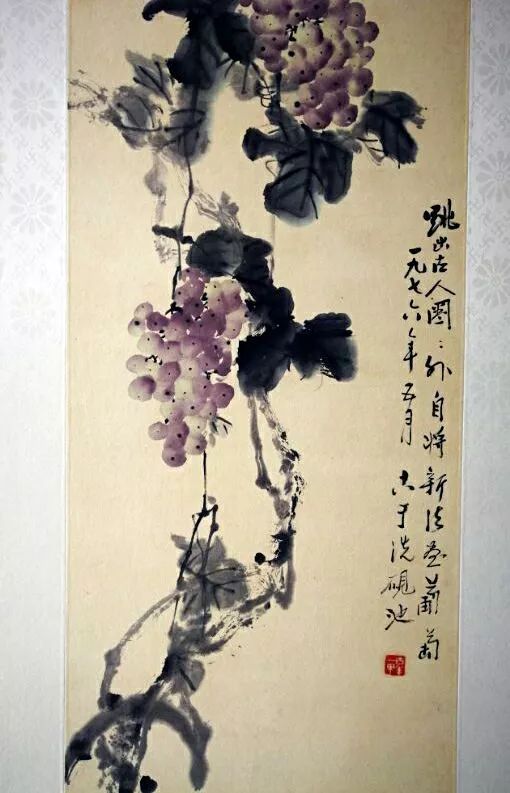 跳出古人圈〻外自将新法画葡萄
一九七六年五月 于洗硯池